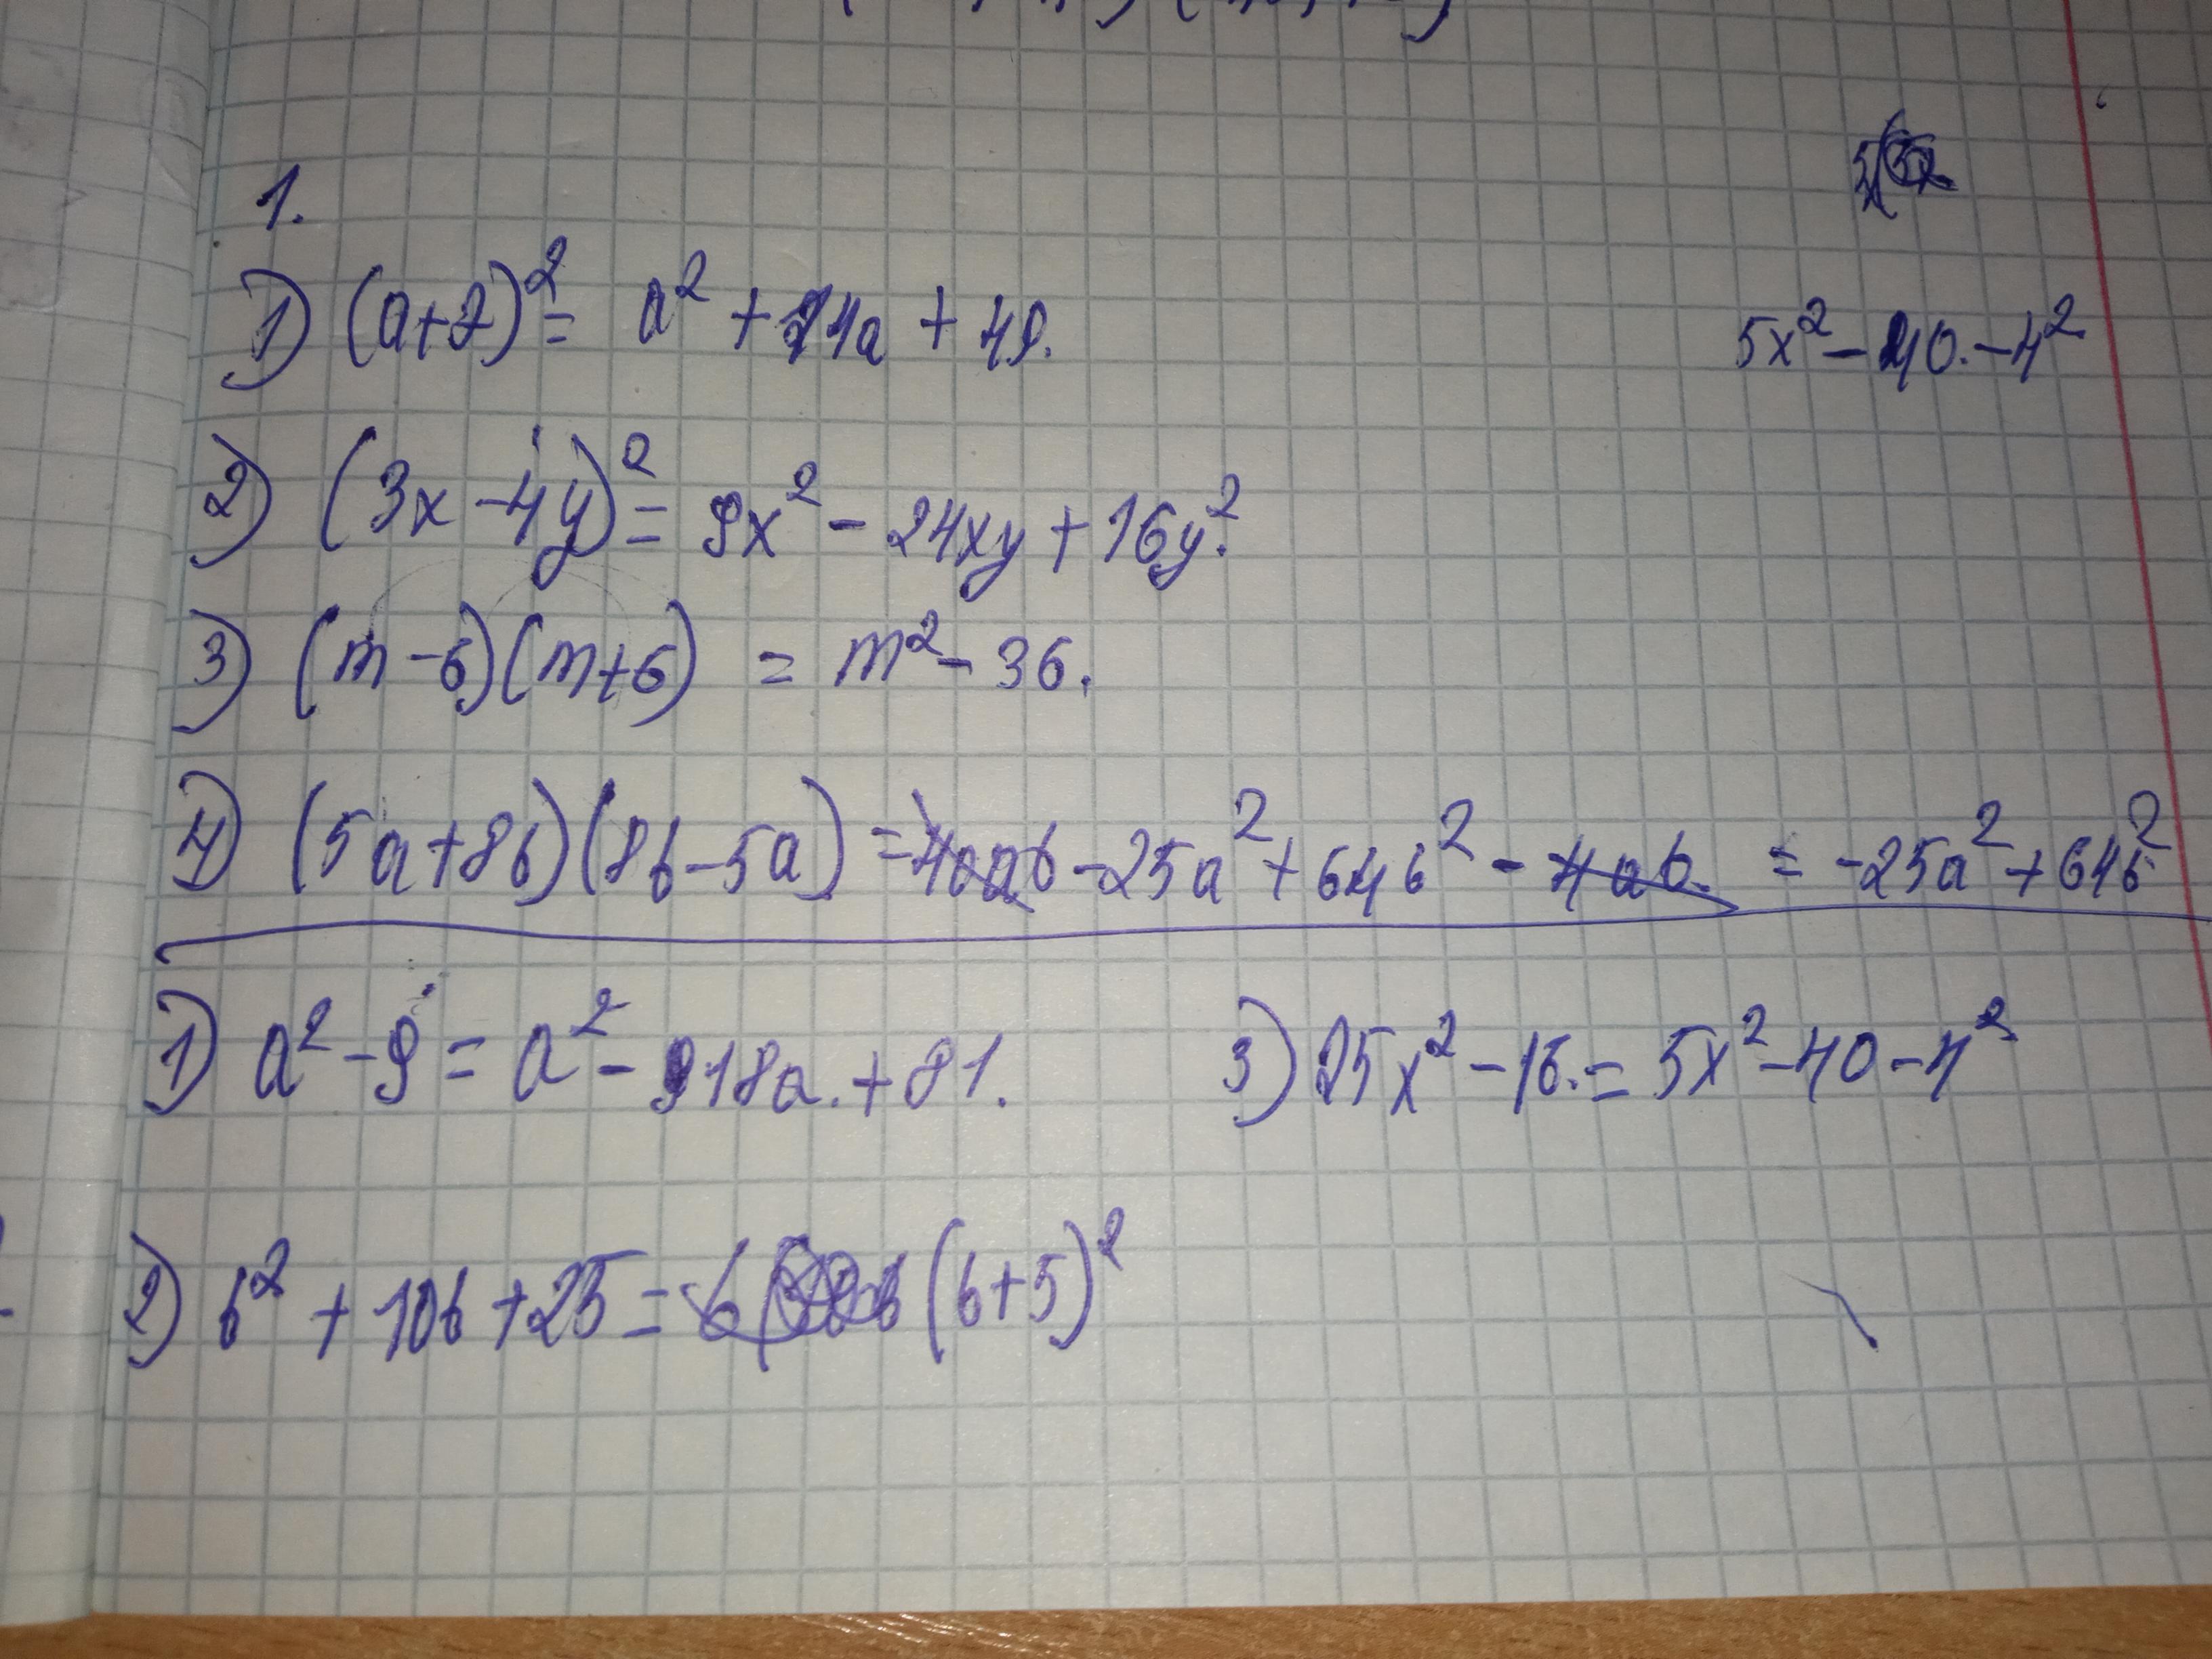 1.
1) (a+7)² = a² + 14a + 49.
5x² - 40. - 4²
2) (3x - 4y)² = 9x² - 24xy + 16y².
3) (m - 6)(m + 6) = m² - 36.
4) (5a + 8b)(8b - 5a) = 40ab - 25a² + 64b² - 4ab. = -25a² + 64b²
1) a² - 9 = a² - 18a. + 81.
3) 25x² - 16. = 5x² - 40 - 4²
2) b² + 10b + 25 = (b + 5)²